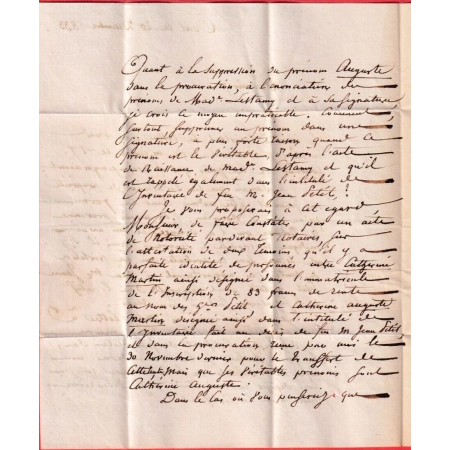 Quant à la Suppression du prénom Auguste
dans la procuration, à l'énonciation des
prénoms de Made. Lestamy et à sa signature
je crois le moyen impraticable. Comment,
surtout, supprimer un prénom dans une
signature, à plus forte raison quand ce
prénom est le véritable, d'après l'acte
de Naissance de made. Lestamy et qu'il
est rappelé également dans l'intitulé de
l'Inventaire de feu M. Jean Petit.
Je vous proposerais à cet égard
Monsieur, de faire constater par un acte
de Notoriété pardevant Notaires sur
l'attestation de deux témoins, qu'il y a
parfaite identité de personnes entre Catherine
Martin ainsi désignée dans l'immatricule
de l'Inscription de 83 francs de rente
au nom des Petit et Catherine Auguste
Martin désignée ainsi dans l'intitulé de
l'Inventaire fait au décès de feu M. Jean Petit,
et dans la procuration reçue par moi le
30 Novembre dernier pour le transfert de
mais que ses véritables prénoms sont
Catherine Auguste.
Dans le cas où vous penseriez que